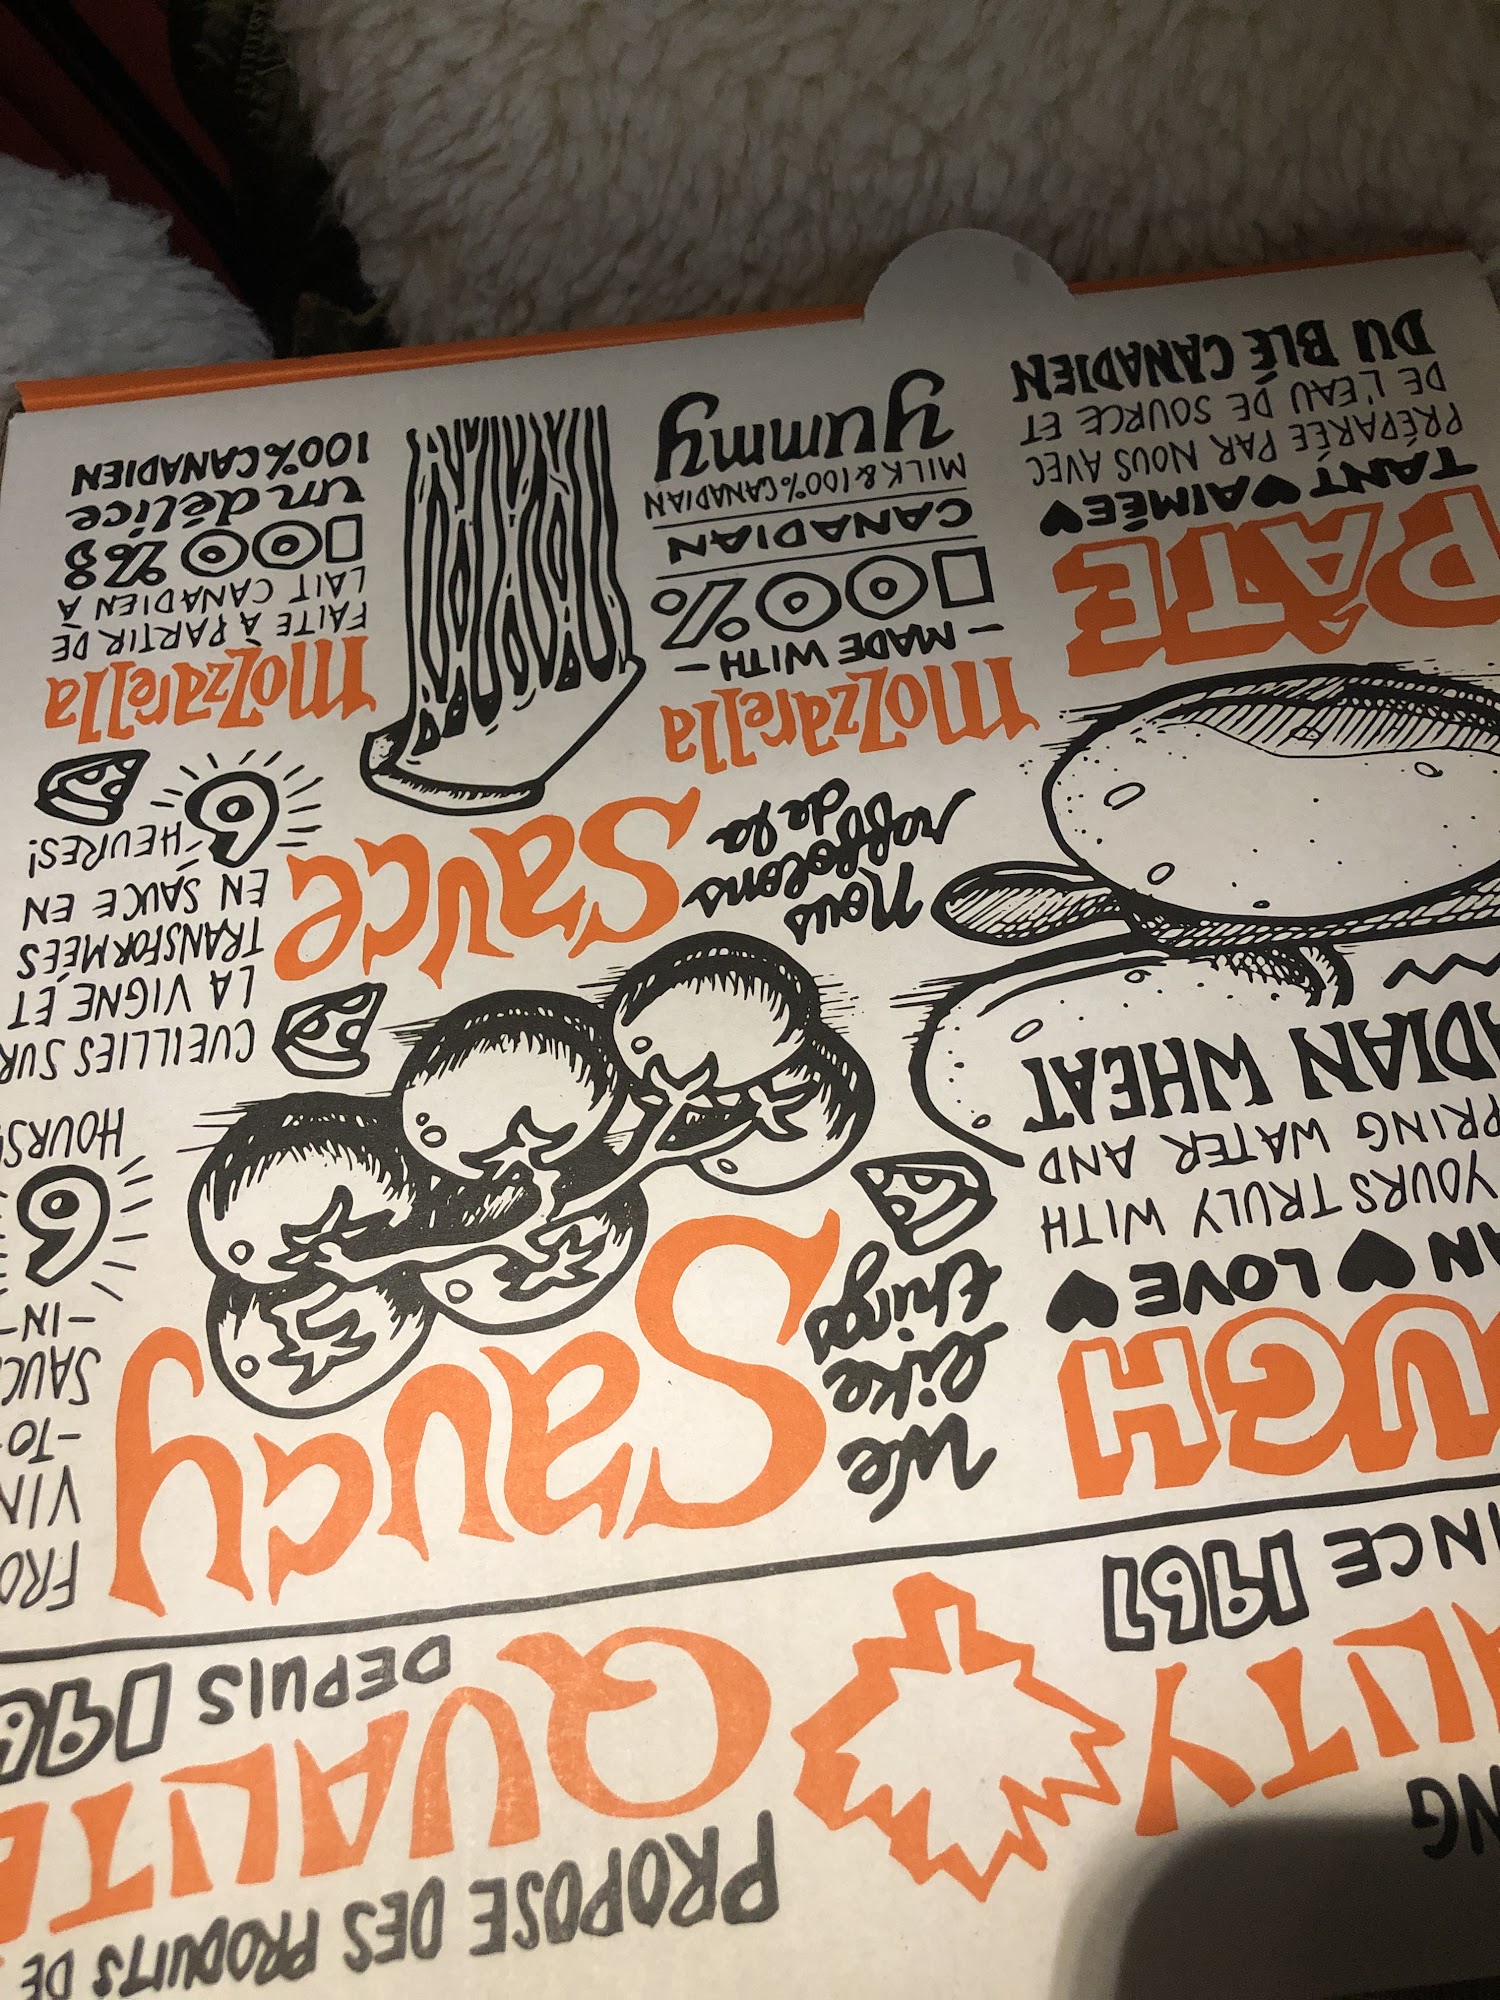 NG
ALITY
INCE 1967
PROPOSE DES PRODUITS DE
QUALITÉ
DEPUIS 196
UGH
AN ♥ LOVE ♥
YOURS TRULY WITH
PRING WATER AND
ADIAN WHEAT
We
like
things
Saucy
FRO
VIN
-TO-
SAUC
-IN-
6
HOURS
Nous
raffolons
de la
Sauce
CUEILLIES SUR
LA VIGNE ET
TRANSFORMÉES
EN SAUCE EN
6 HEURES!
PÂTE
TANT ♥ AIMÉE ♥
PRÉPARÉE PAR NOUS AVEC
DE L'EAU DE SOURCE ET
DU BLÉ CANADIEN
Mozzarella
- MADE WITH -
100%
CANADIAN
MILK & 100% CANADIAN
yummy
Mozzarella
FAITE À PARTIR DE
LAIT CANADIEN À
100%
un délice
100% CANADIEN